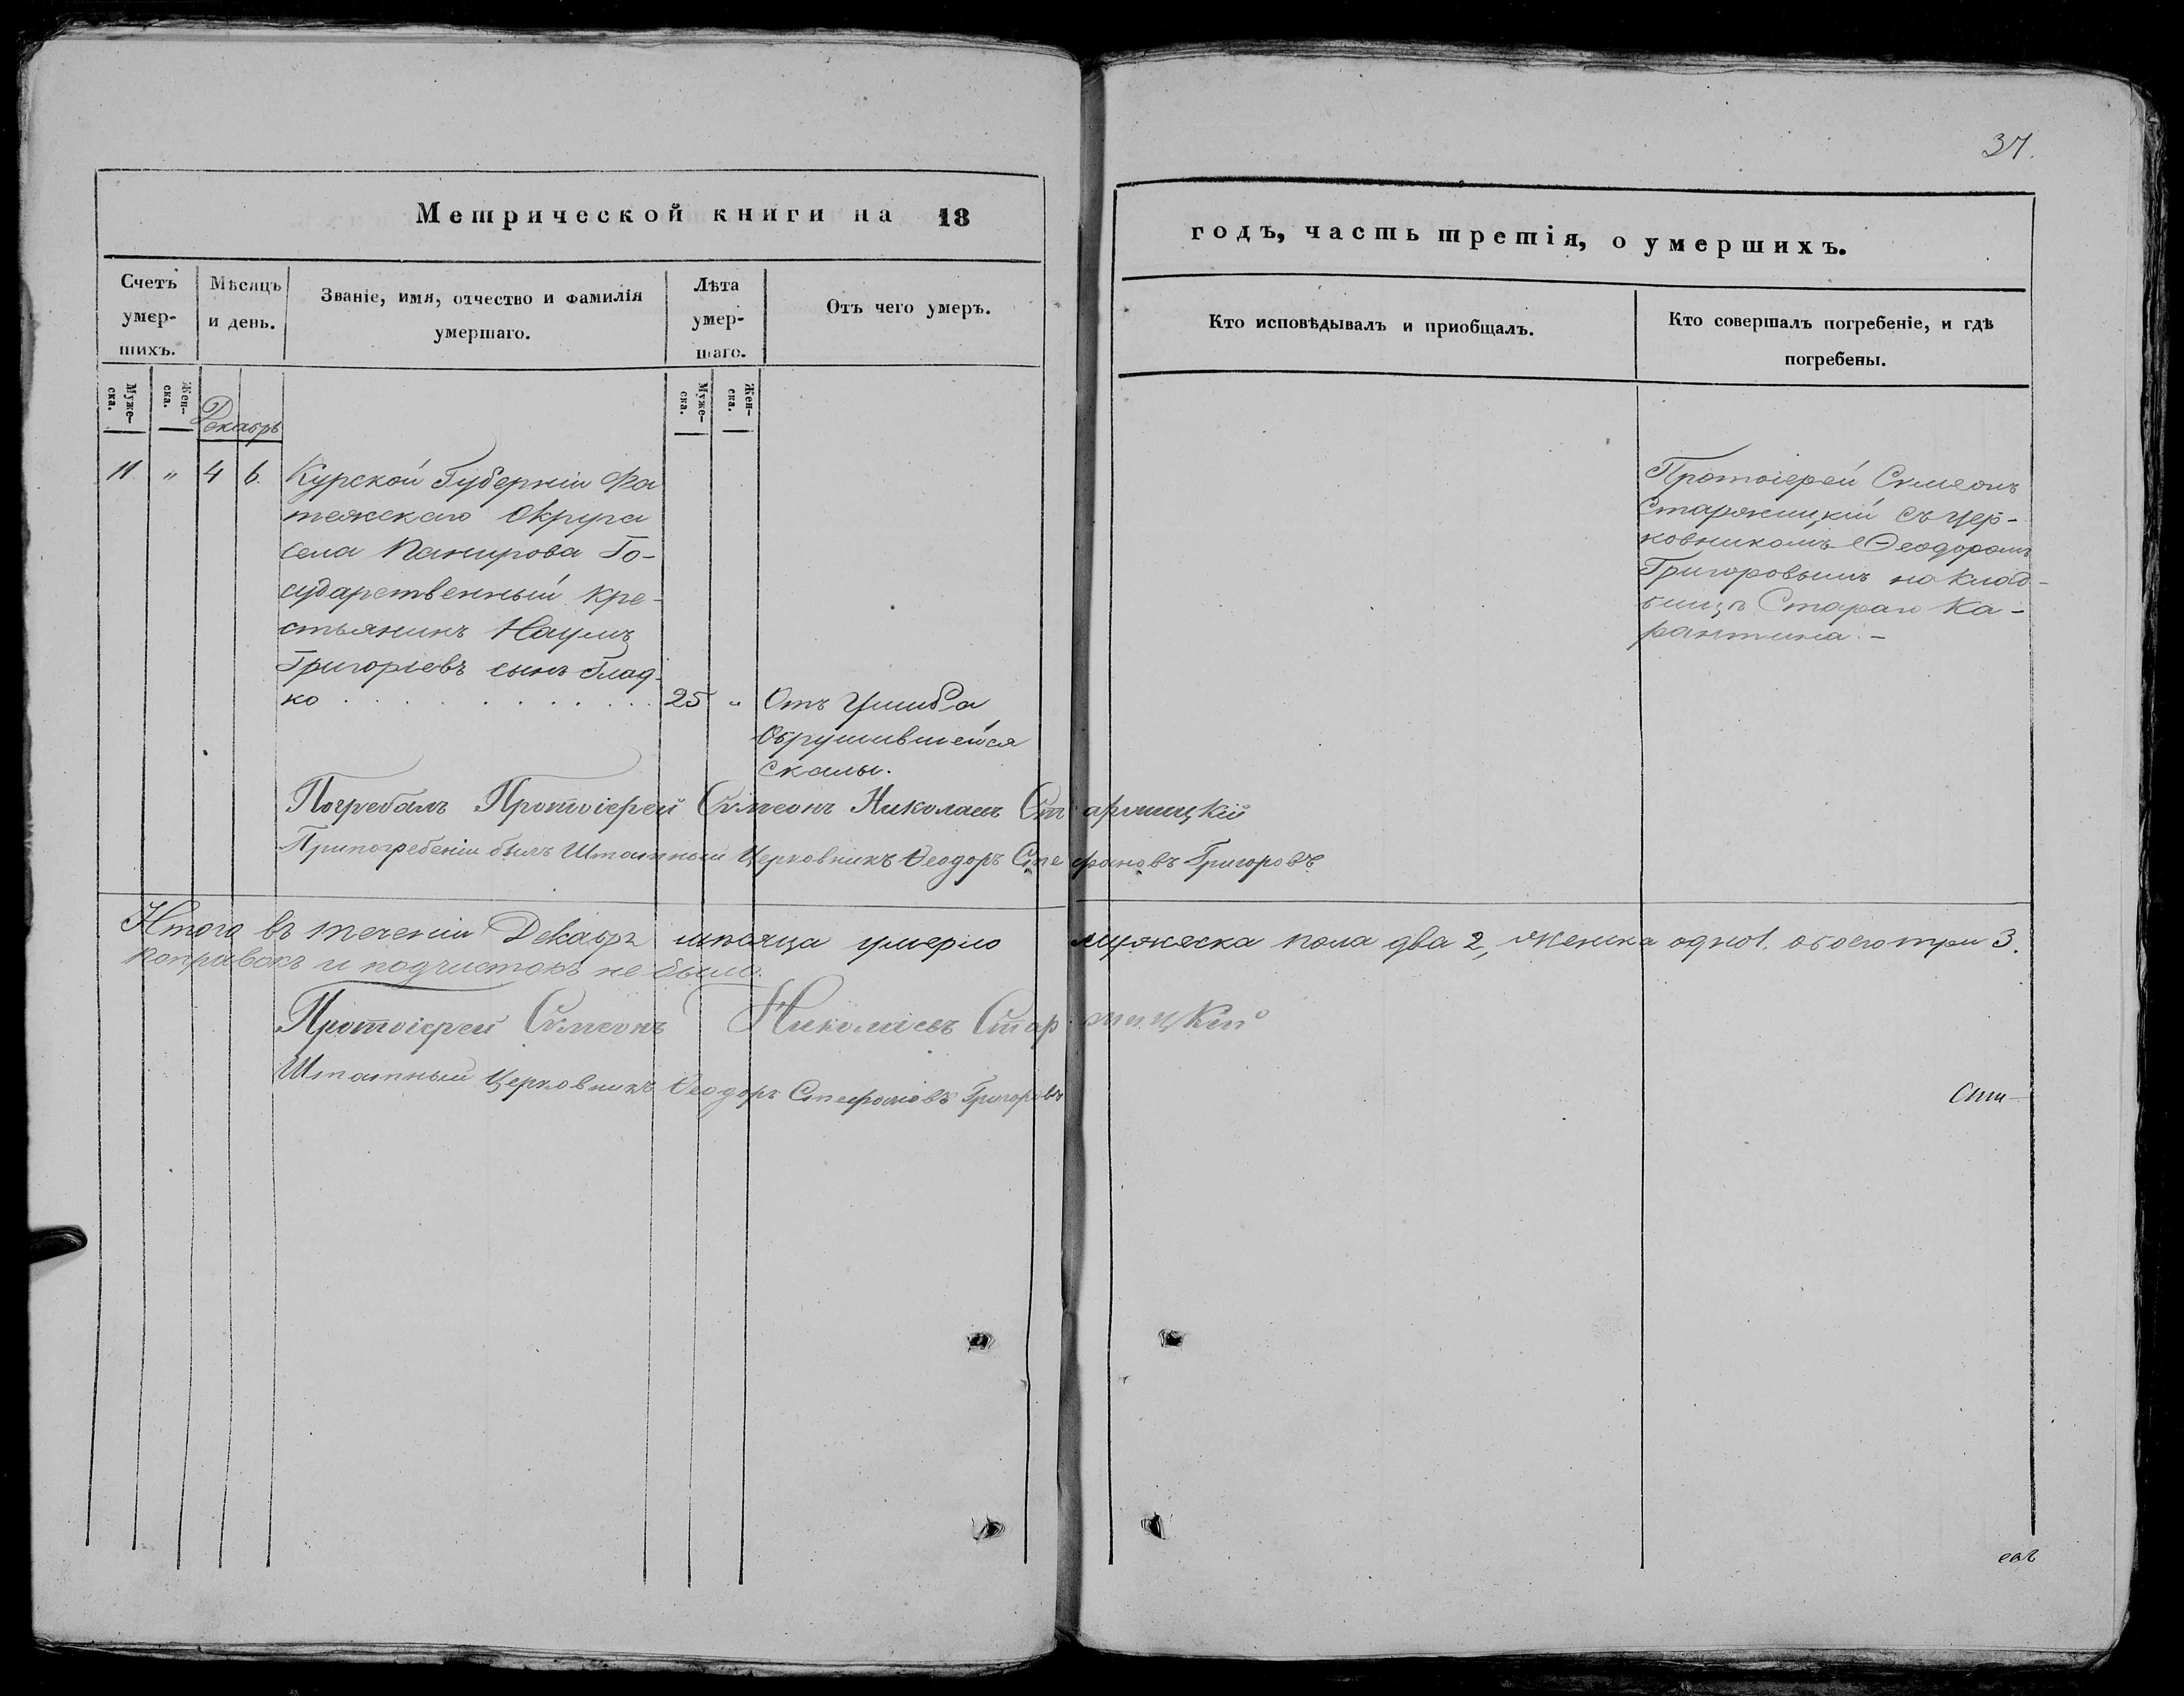 37.
Метрической книги на 18
годъ, часть третія, о умершихъ.
Счетъ умер-шихъ.
Мѣсяцъ и день.
Званіе, имя, отчество и фамилія умершаго.
Лѣта умер-шаго.
Отъ чего умеръ.
Кто исповѣдывалъ и приобщалъ.
Кто совершалъ погребеніе, и гдѣ погребены.
Муже-ска.
Жен-ска.
Муже-ска.
Жен-ска.
Декабрь
11. " 4 6.
Курской Губерніи Фа
тежскаго Округа
села Панирова Го-
сударственный Кре-
стьянинъ Наумъ
Григорьевъ сынъ Глад-
ко . . . . . . . . . . 25 "
Отъ Ушиба
Обрушившейся
Скалы.
Протоіерей Сѵмеонъ
Старжицкій съ Цер-
ковникомъ Ѳеодоромъ
Григоровымъ на Клад-
бищѣ Стараго Ка-
рантина. -
Погребалъ Протоіерей Сѵмеонъ Николаевъ Старжицкій
При погребеніи былъ Штатный Церковникъ Ѳеодоръ Стефановъ Григоровъ
Итого въ теченіи Декабрѣ мѣсяца умерло мужеска пола два 2, женска одно 1. обоего три 3.
поправокъ и подчистокъ не было.
Протоіерей Сѵмеонъ Николаевъ Старжицкій
Штатный Церковникъ Ѳеодоръ Стефановъ Григоровъ